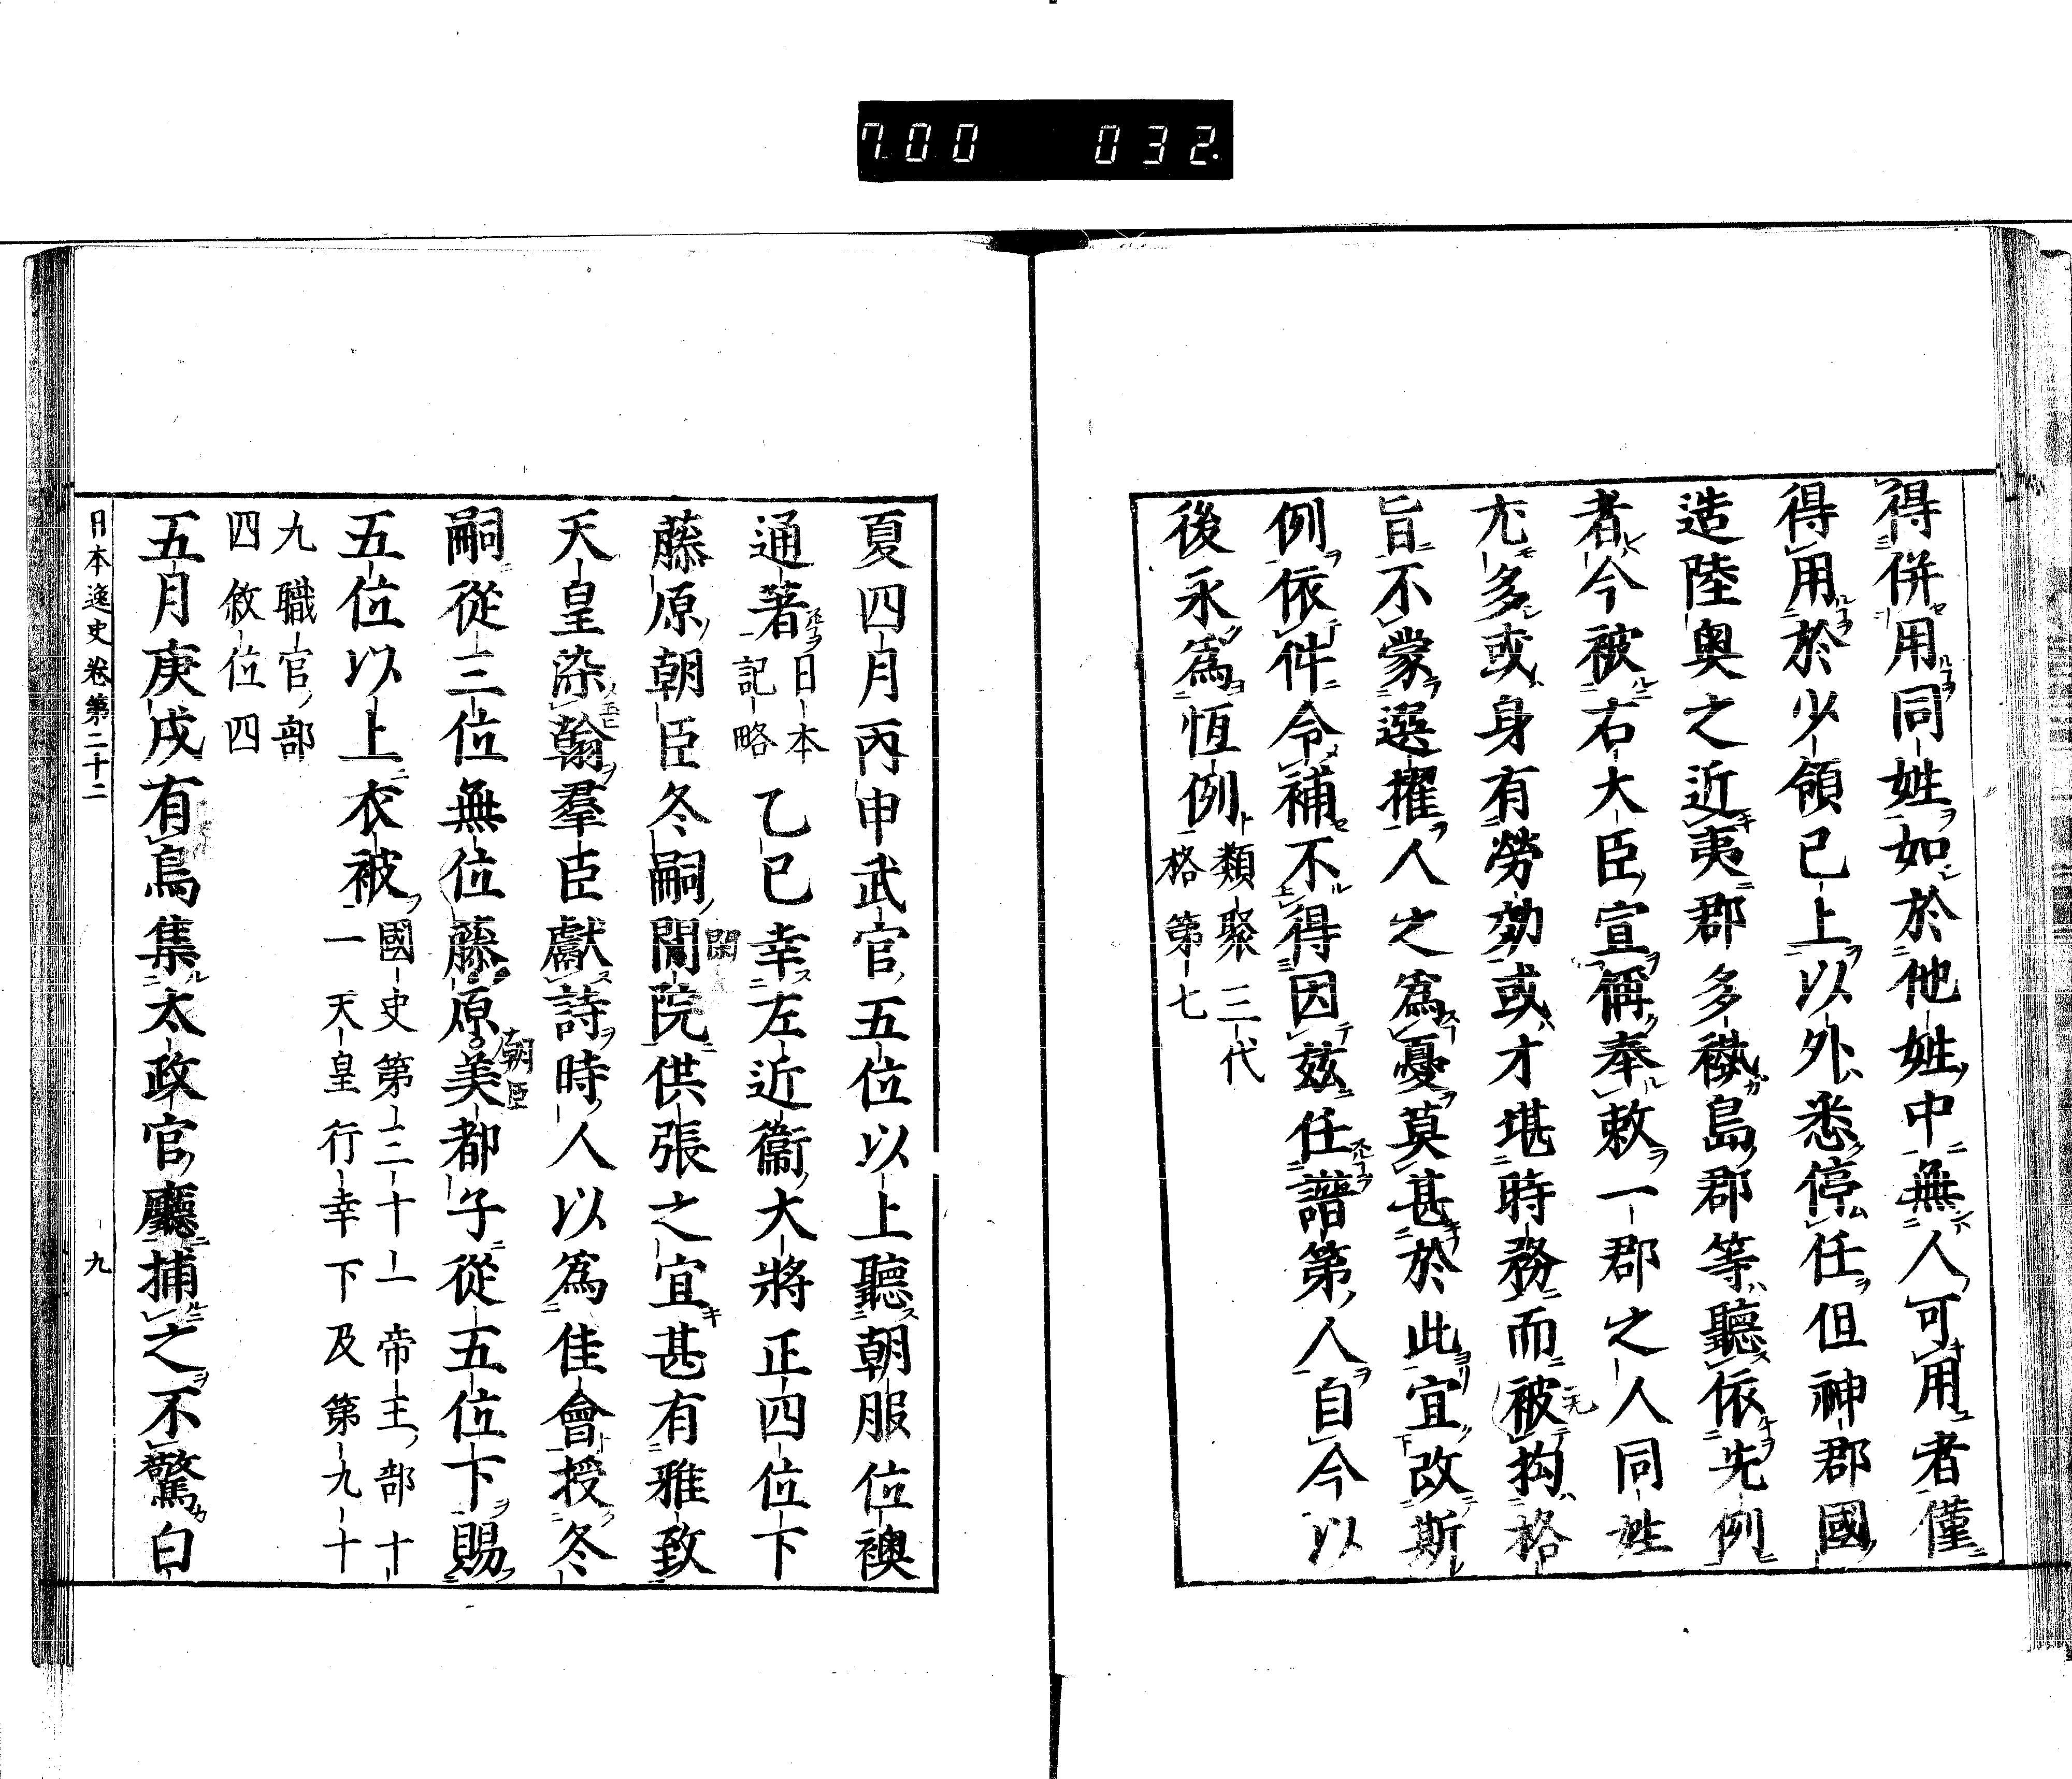 700 032.
得併用同姓如於他姓中無人可用者僅
得用於少領已上以外悉停任但神郡國
造陸奥之近夷郡多褹島郡等聽依先例
者今被右大臣宣偁奉敕一郡之人同姓
尤多或身有勞効或才堪時務而被拘格
旨不蒙選擢人之爲憂莫甚於此宜改斯
例依件令補不得因茲任譜第人自今以
後永爲恆例類聚三代
格第七
夏四月丙申武官五位以上聽朝服位襖
通著日本
記略乙巳幸左近衞大將正四位下
藤原朝臣冬嗣閒院供張之宜甚有雅致
閑
天皇染翰羣臣獻詩時人以爲佳會授冬
嗣從三位無位藤原美都子從五位下賜
朝臣
五位以上衣被國史第二十一帝王部十
一天皇行幸下及第九十
九職官部
四敘位四
五月庚戌有烏集太政官廳捕之不驚白
日本逸史卷第二十二 九